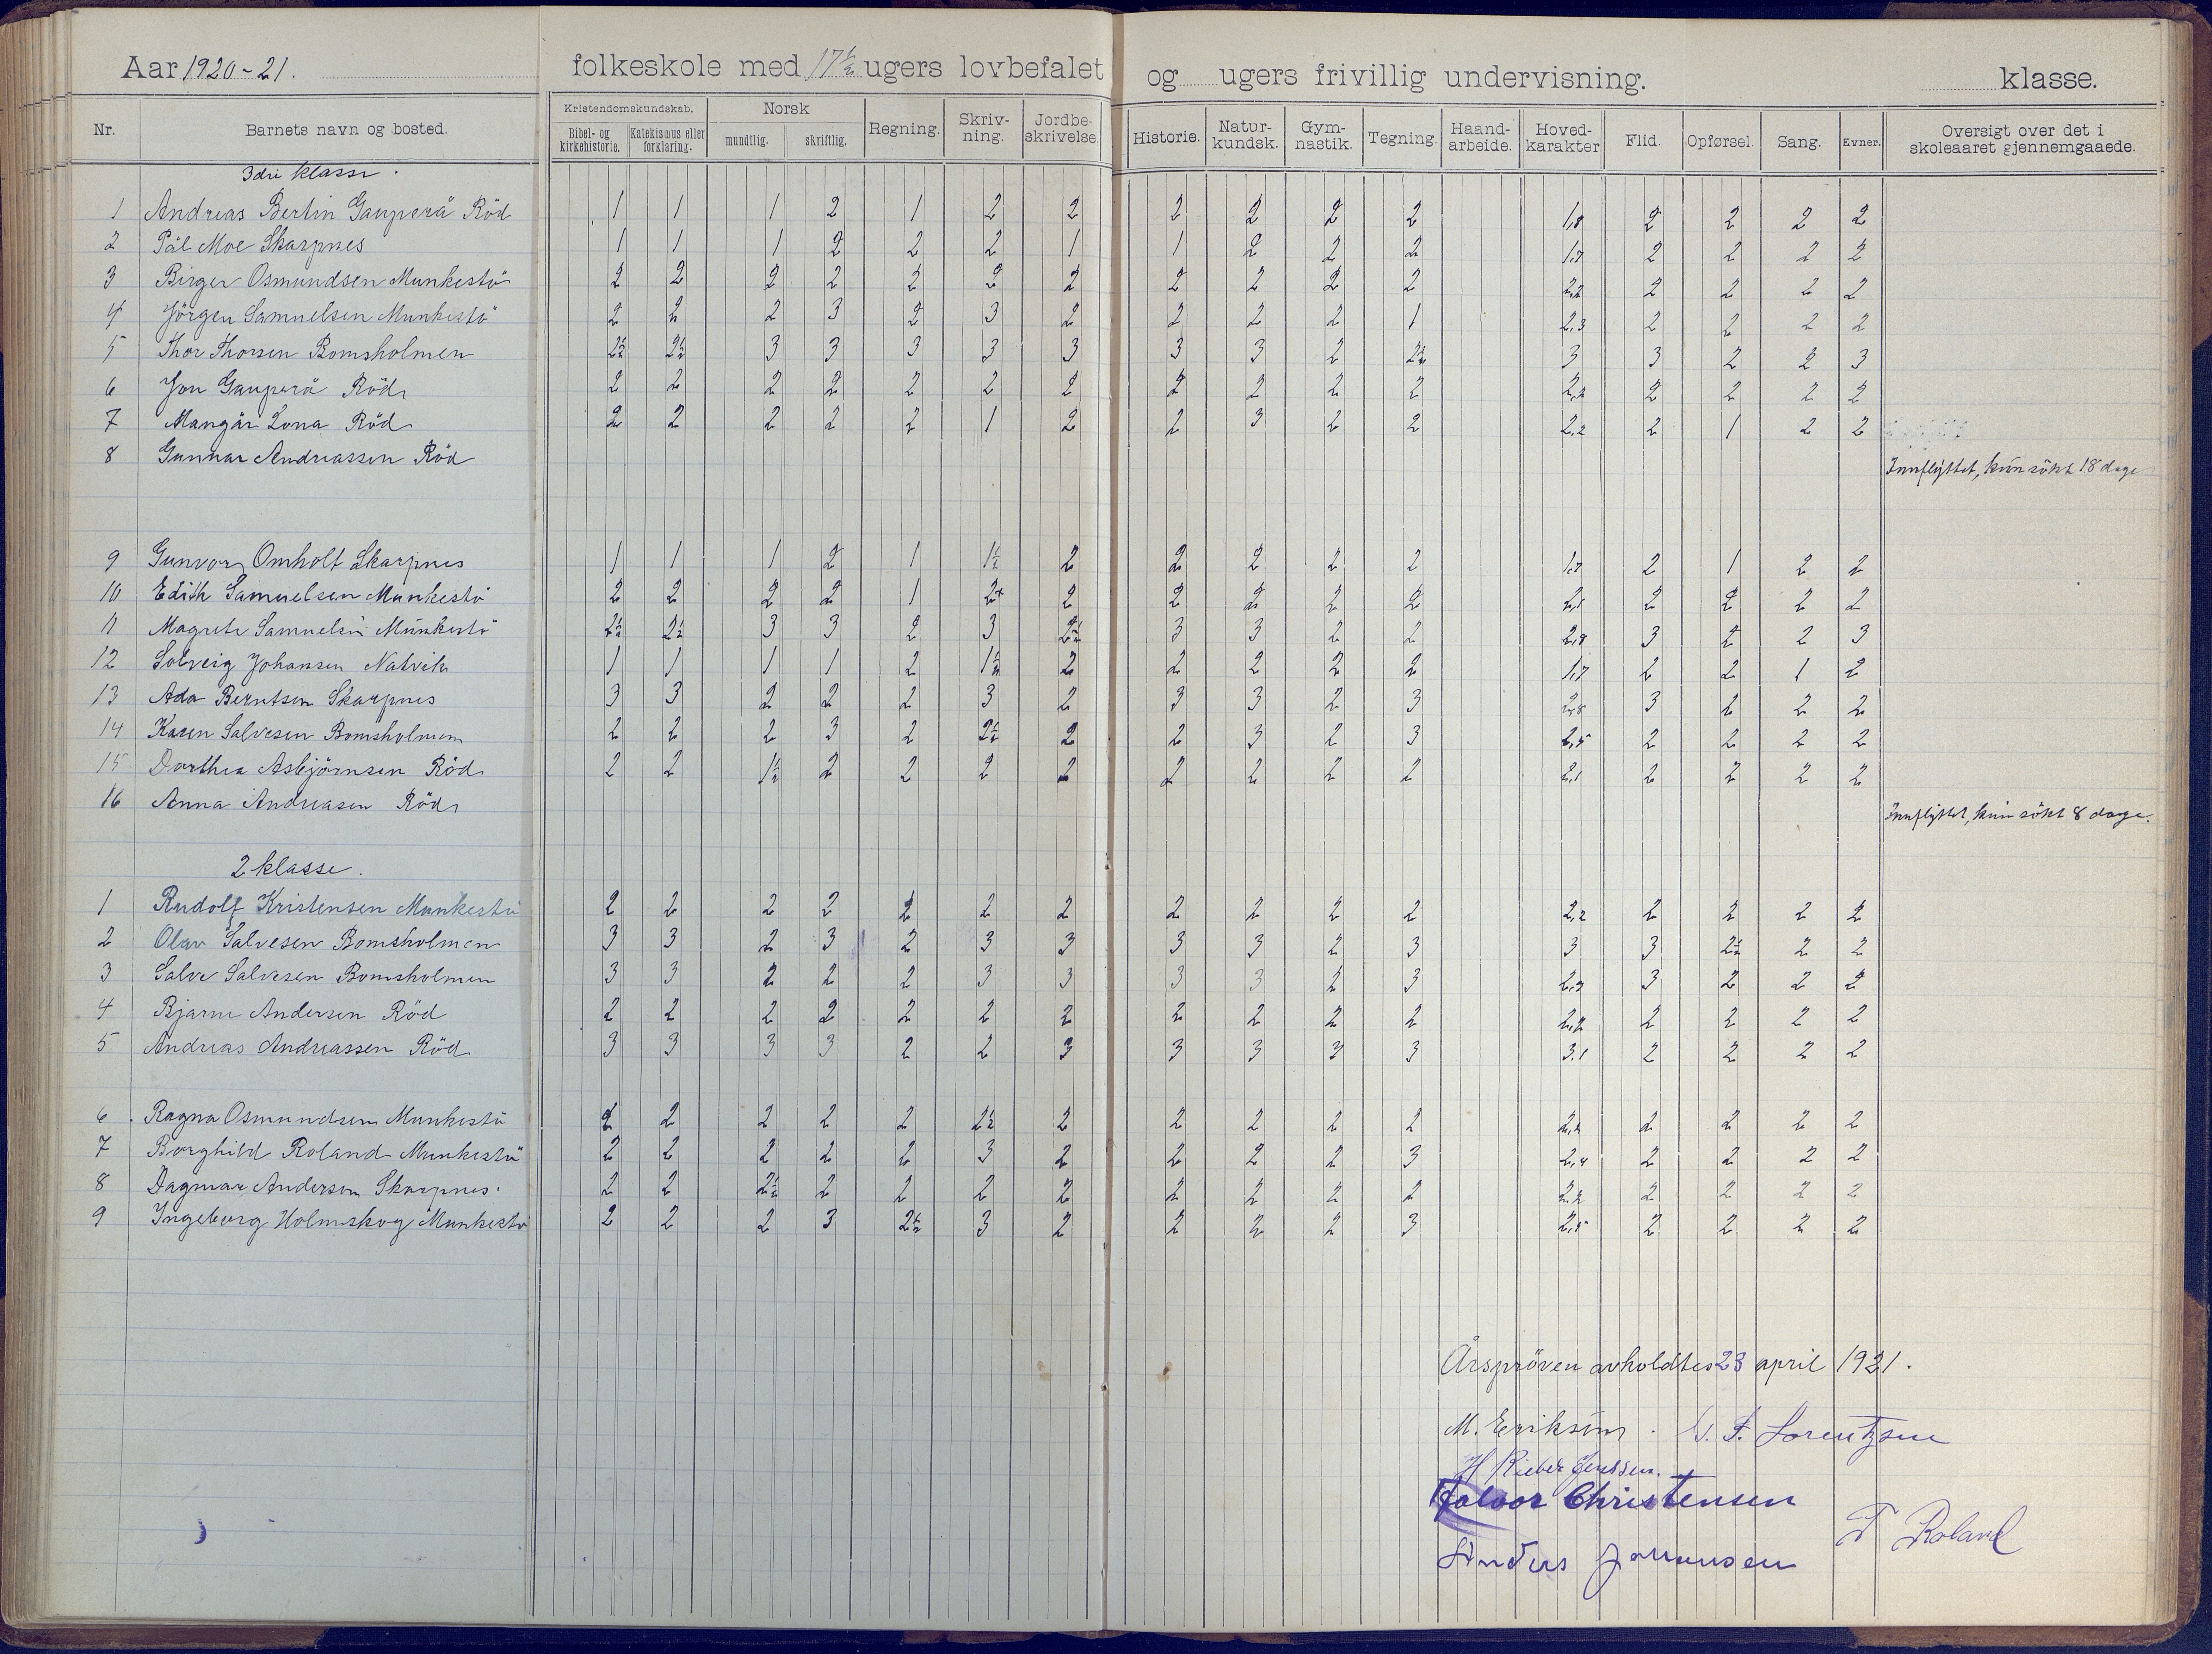 Aar 1920-21. folkeskole med 17½ ugers lovbefalet og ugers frivillig undervisning. klasse.
Nr. Barnets navn og bosted. Kristendomskundskab. Bibel- og kirkehistorie. Katekismus eller forklaring. Norsk mundtlig. skriftlig. Regning. Skriv-ning. Jordbe-skrivelse. Historie. Natur-kundsk. Gym-nastik. Tegning. Haand-arbeide. Hoved-karakter Flid. Opførsel. Sang. Evner. Oversigt over det i skoleaaret gjennemgaaede.
3die klasse.
1 Andreas Bertin Gauperå Röd 1 1 1 2 1 2 2 2 2 2 2 1,8 2 2 2 2
2 Pål Moe Skarpnes 1 1 1 2 2 2 1 1 2 2 2 1,7 2 2 2 2
3 Birger Osmundsen Munkestö 2 2 2 2 2 2 2 2 2 2 2 2,2 2 2 2 2
4 Jörgen Samuelsen Munkestö 2 2 2 3 2 3 2 2 2 2 1 2,3 2 2 2 2
5 Thor Thorsen Bomsholmen 2½ 2½ 3 3 3 3 3 3 3 2 2½ 3 3 2 2 3
6 Jon Gauperå Röd 2 2 2 2 2 2 2 2 2 2 2 2,2 2 2 2 2
7 Mangår Lona Röd 2 2 2 2 2 1 2 2 3 2 2 2,2 2 1 2 2
8 Gunnar Andreassen Röd Innflyttet, kun sökt 18 dage
9 Gunvor Omholt Skarpnes 1 1 1 2 1 1½ 2 2 2 2 2 1,7 2 1 2 2
10 Edith Samuelsen Munkestö 2 2 2 2 1 2+ 2 2 2 2 2 2,1 2 2 2 2
11 Magrete Samuelsen Munkestö 2½ 2½ 3 3 2 3 2½ 3 3 2 2 2,8 3 2 2 3
12 Solveig Johansen Natvik 1 1 1 1 2 1½ 2 2 2 2 2 1,7 2 2 1 2
13 Ada Berntsen Skarpnes 3 3 2 2 2 3 2 3 3 2 3 2,8 3 2 2 2
14 Karen Salvesen Bomsholmen 2 2 2 3 2 2½ 2 2 3 2 3 2,5 2 2 2 2
15 Dorthea Asbjörnsen Röd 2 2 1½ 2 2 2 2 2 2 2 2 2,1 2 2 2 2
16 Anna Andreasen Röd Innflyttet, kun sökt 8 dage.
2 klasse.
1 Rudolf Kristensen Munkestö 2 2 2 2 2 2 2 2 2 2 2 2,2 2 2 2 2
2 Olav Salvesen Bomsholmen 3 3 2 3 2 3 3 3 3 2 3 3 3 2½ 2 2
3 Salve Salvesen Bomsholmen 3 3 2 2 2 3 3 3 3 2 3 2,9 3 2 2 2
4 Bjarne Andersen Röd 2 2 2 2 2 2 2 2 2 2 2 2,2 2 2 2 2
5 Andreas Andreassen Röd 3 3 3 3 2 2 3 3 3 3 3 3,1 2 2 2 2
6 Ragna Osmundsen Munkestö 2 2 2 2 2 2½ 2 2 2 2 2 2,2 2 2 2 2
7 Borghild Roland Munkestö 2 2 2 2 2 3 2 2 2 2 3 2,4 2 2 2 2
8 Dagmar Andersen Skarpnes. 2 2 2½ 2 2 2 2 2 2 2 2 2,2 2 2 2 2
9 Ingeborg Holmskog Munkestö 2 2 2 3 2½ 3 2 2 2 2 3 2,5 2 2 2 2
Årspröven avholdtes 23 april 1921.
M. Eeriksen. F. Lorentzsen
H Rieber Jenssen.
Halvor Christensen
T Roland
Anders Johansen